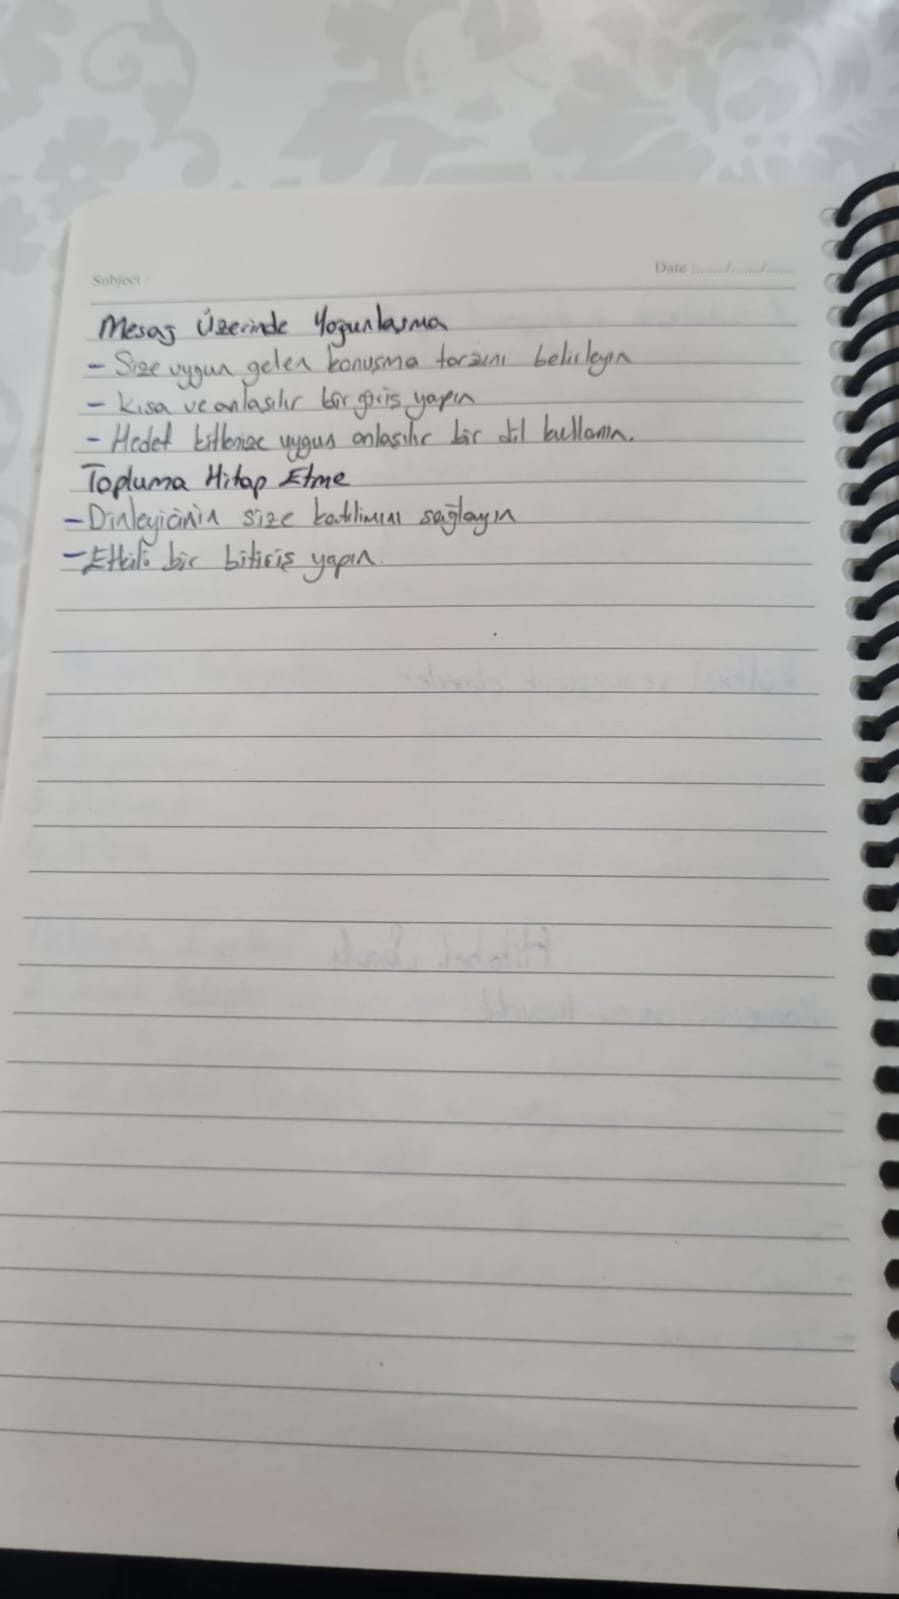 Subject :
Date :....../....../......
Mesaj Üzerinde Yogunlasma
- Size uygun gelen konusma tarzını belirleyin
- Kısa ve anlasılır bir giriş yapın
- Hedef kitlenize uygun anlasılır bir dil kullanın.
Topluma Hitap Etme
- Dinleyicinin size katılımını sağlayın
- Etkili bir bitiriş yapın.